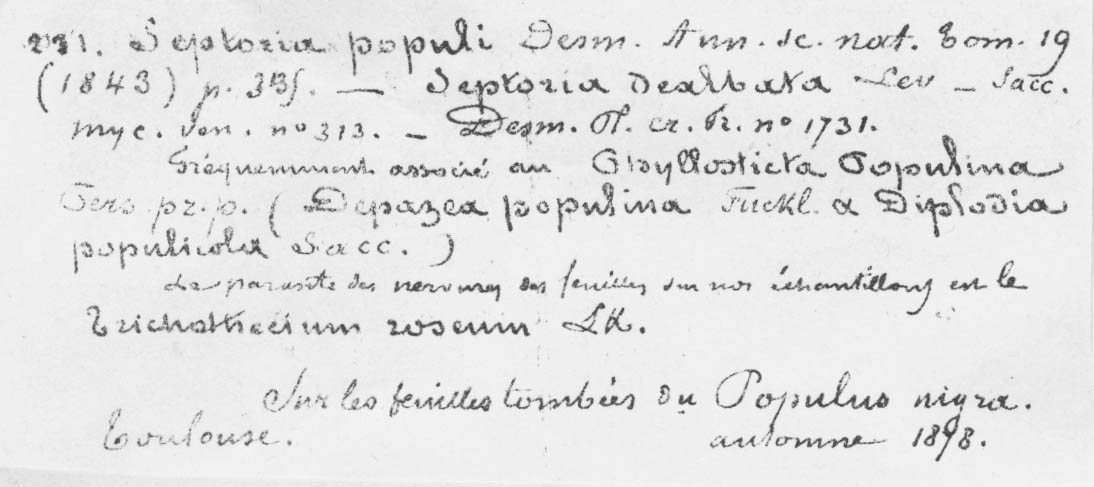 Septoria populi Desm. Ann. sc. nat. tom. 19
(1843) p. — Septoria dealbata Lev — Sacc.
myc. ven. nº 313. — Desm. Pl. cr. Fr. nº 1731.
Fréquemment associé au Phyllosticta Populina
Pers pr. p. ( Depazea populina Fuckl. & Diplodia
populicola Sacc. )
Le parasite des nervures des feuilles sur nos échantillons est le
Trichothecium roseum LK.
Sur les feuilles tombées du Populus nigra.
Toulouse. automne 1878.